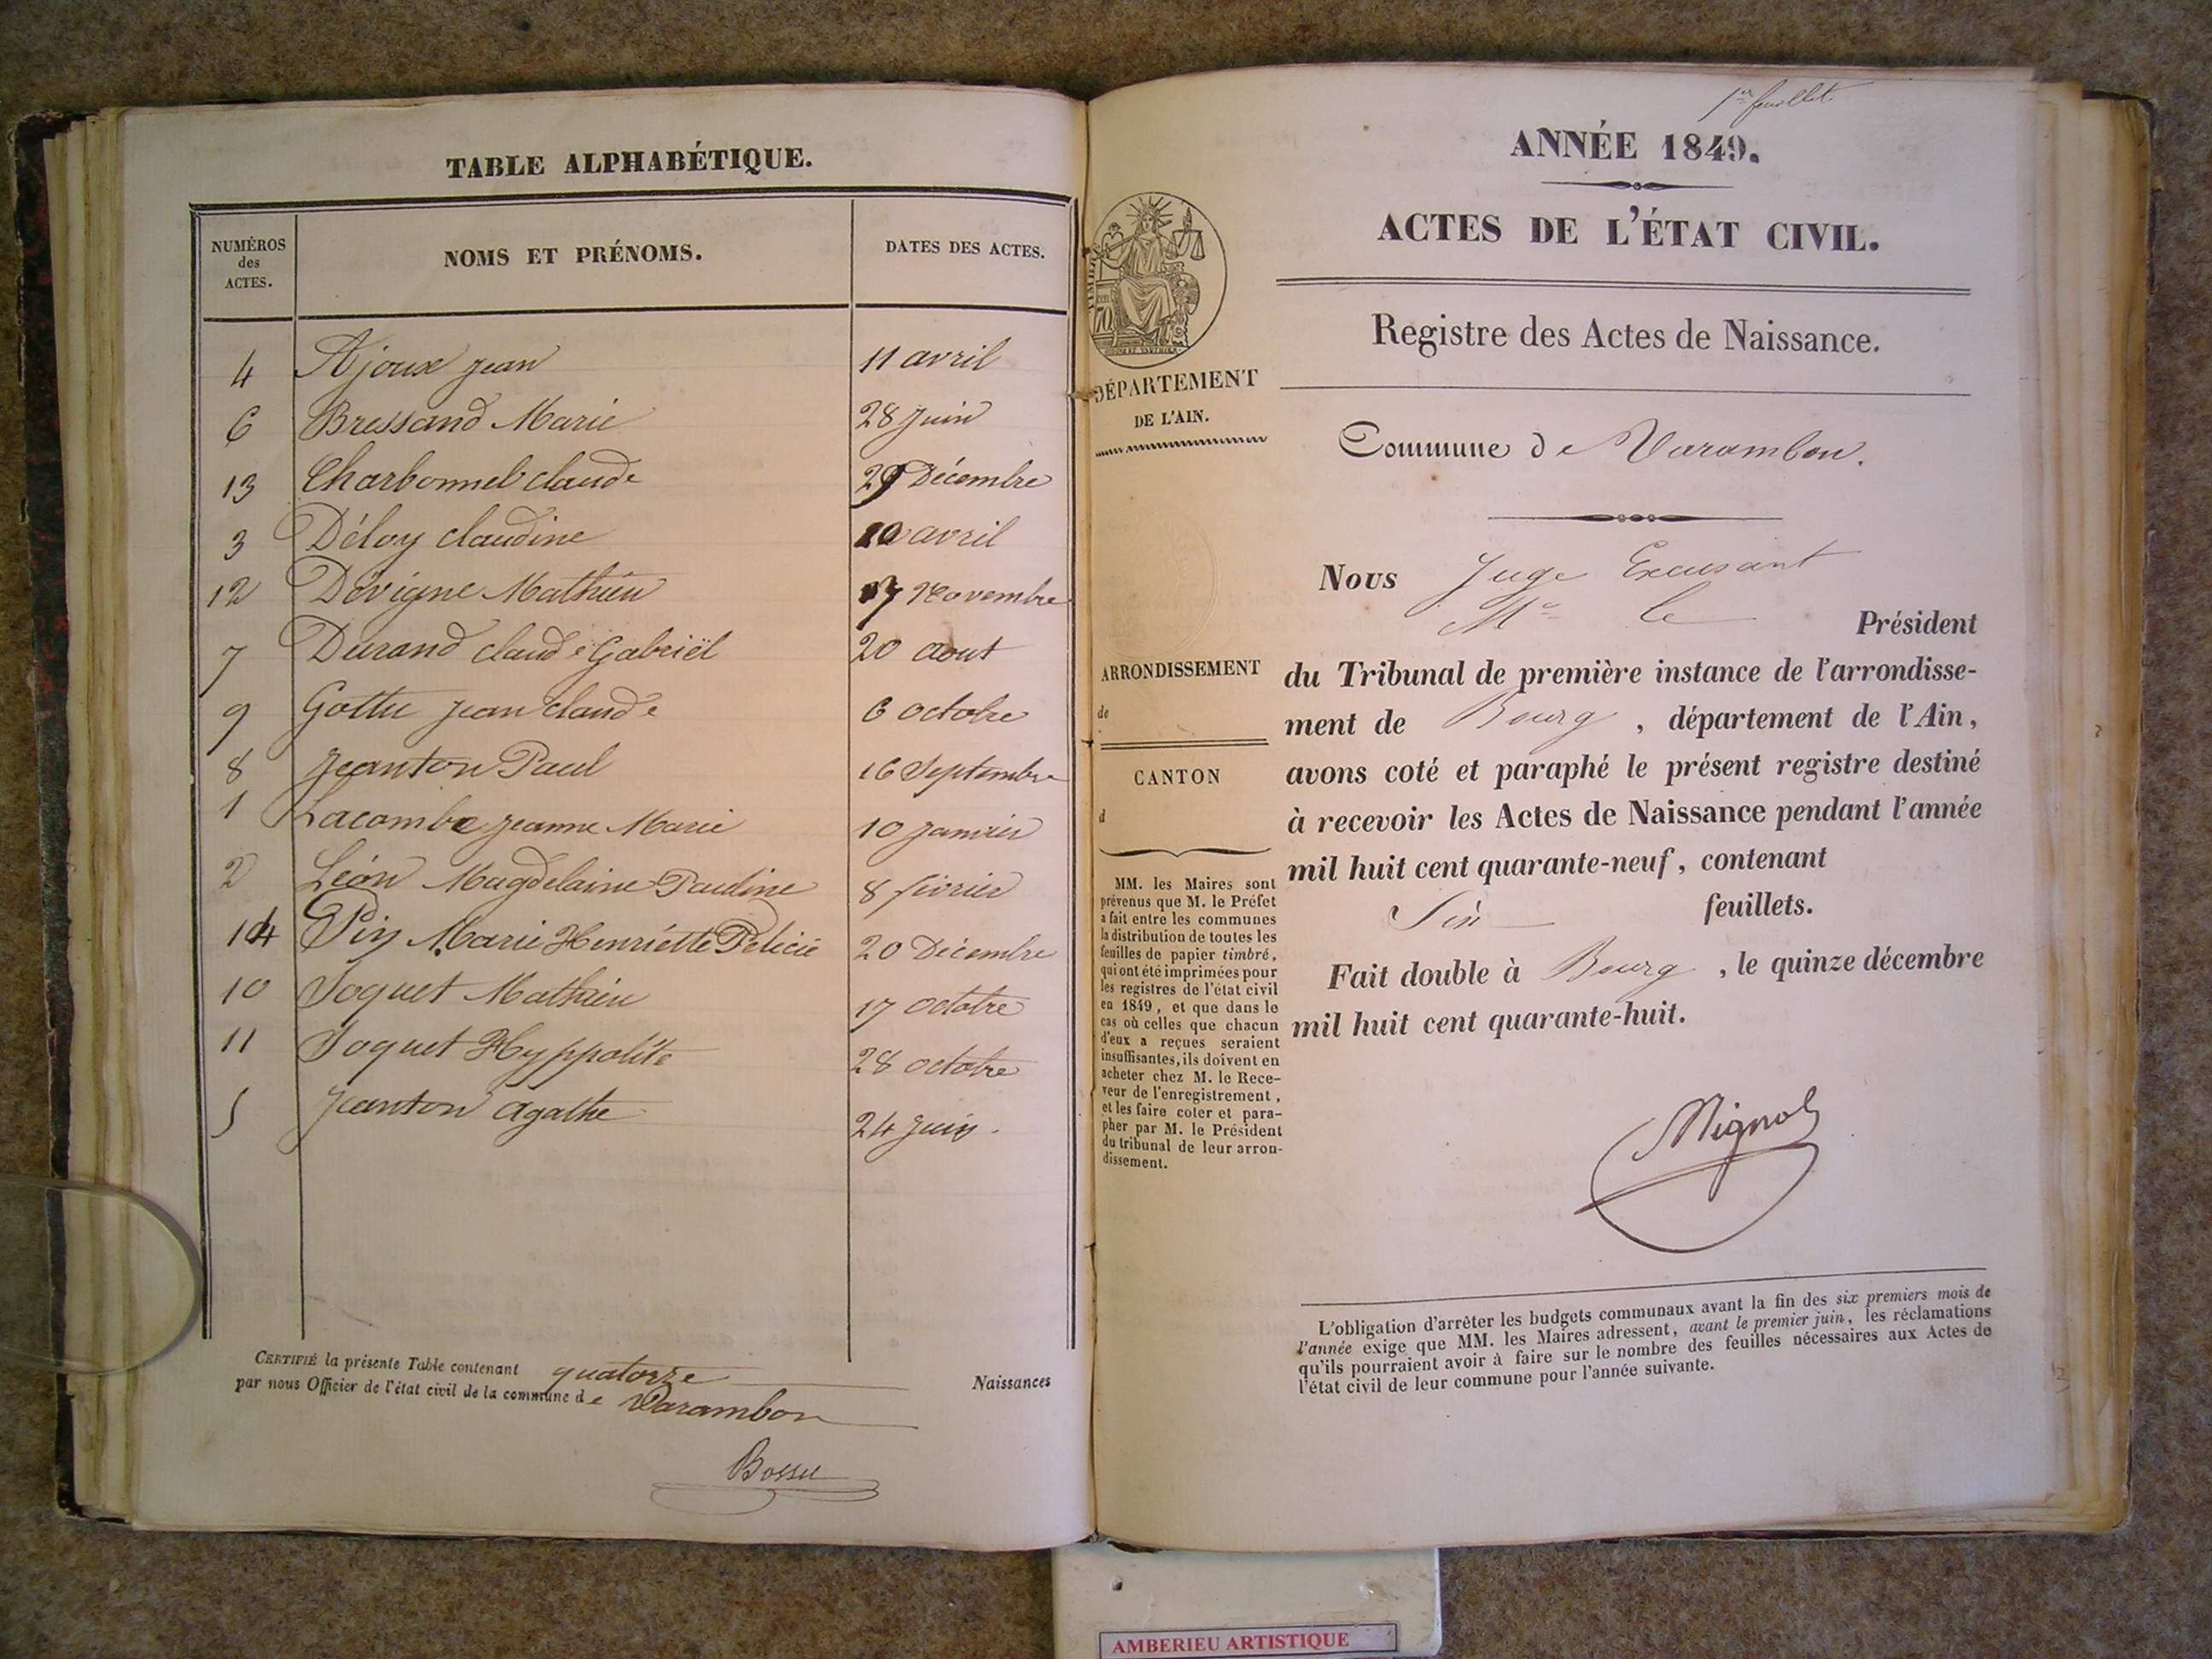 TABLE ALPHABÉTIQUE.
NUMÉROS des ACTES. NOMS ET PRÉNOMS. DATES DES ACTES.
4 Ajoux jean 11 avril
6 Bressand Marie 28 juin
13 Charbonnel claude 29 Décembre
3 Déloy claudine 10 avril
12 Dévigne Mathieu 17 Novembre
7 Durand claude Gabriël 20 aout
9 Gottu jean claude 6 octobre
8 Jeanton Paul 16 Septembre
1 Lacombe jeanne Marie 10 janvier
2 Léon Magdelaine Pauline 8 février
14 Pin Marie Henriette Félicie 20 Décembre
10 Soquet Mathieu 17 octobre
11 Soquet Hyppolite 28 octobre
5 Jeanton agathe 24 juin.
CERTIFIÉ la présente Table contenant quatorze Naissances
par nous Officier de l'état civil de la commune de Varambon
Bossu
1er feuillet
ANNÉE 1849.
ACTES DE L'ÉTAT CIVIL.
Registre des Actes de Naissance.
DÉPARTEMENT
DE L'AIN.
Commune de Varambon.
Nous Juge Excusant
Mr le Président
ARRONDISSEMENT
de
CANTON
d
du Tribunal de première instance de l'arrondisse-
ment de Bourg, département de l'Ain,
avons coté et paraphé le présent registre destiné
à recevoir les Actes de Naissance pendant l'année
mil huit cent quarante-neuf, contenant
feuillets.
Fait double à Bourg, le quinze décembre
mil huit cent quarante-huit.
MM. les Maires sont
prévenus que M. le Préfet
a fait entre les communes
la distribution de toutes les
feuilles de papier timbré,
qui ont été imprimées pour
les registres de l'état civil
en 1849, et que dans le
cas où celles que chacun
d'eux a reçues seraient
insuffisantes, ils doivent en
acheter chez M. le Rece-
veur de l'enregistrement,
et les faire coter et para-
pher par M. le Président
du tribunal de leur arron-
dissement.
Mignot
L'obligation d'arrêter les budgets communaux avant la fin des six premiers mois de
l'année exige que MM. les Maires adressent, avant le premier juin, les réclamations
qu'ils pourraient avoir à faire sur le nombre des feuilles nécessaires aux Actes de
l'état civil de leur commune pour l'année suivante.
AMBERIEU ARTISTIQUE